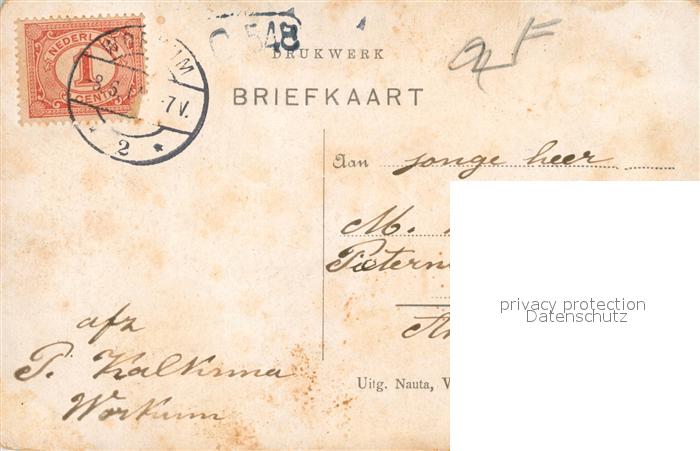 NEDERLAND
1
CENT
7 V.
2 *
548
DRUKWERK
BRIEFKAART
Aan jonge heer
M.
afz
P. Kalkma
Workum
Uitg. Nauta, W
privacy protection
Datenschutz